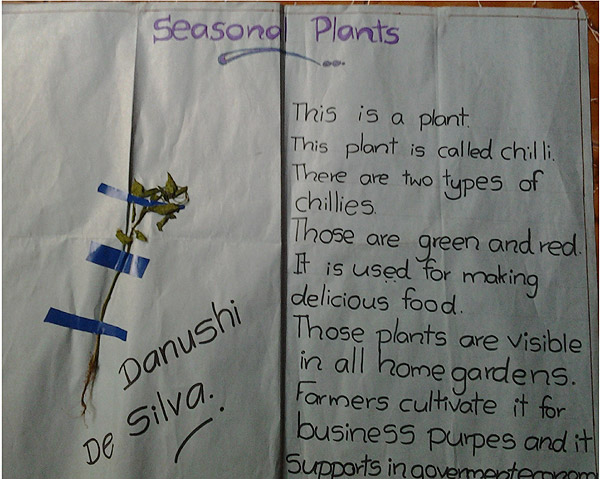 Seasonal Plants
This is a plant.
This plant is called chilli.
There are two types of
chillies.
Those are green and red.
It is used for making
delicious food.
Those plants are visible
in all home gardens.
Farmers cultivate it for
business purpes and it
Supports in goverment econom
Danushi
De Silva.